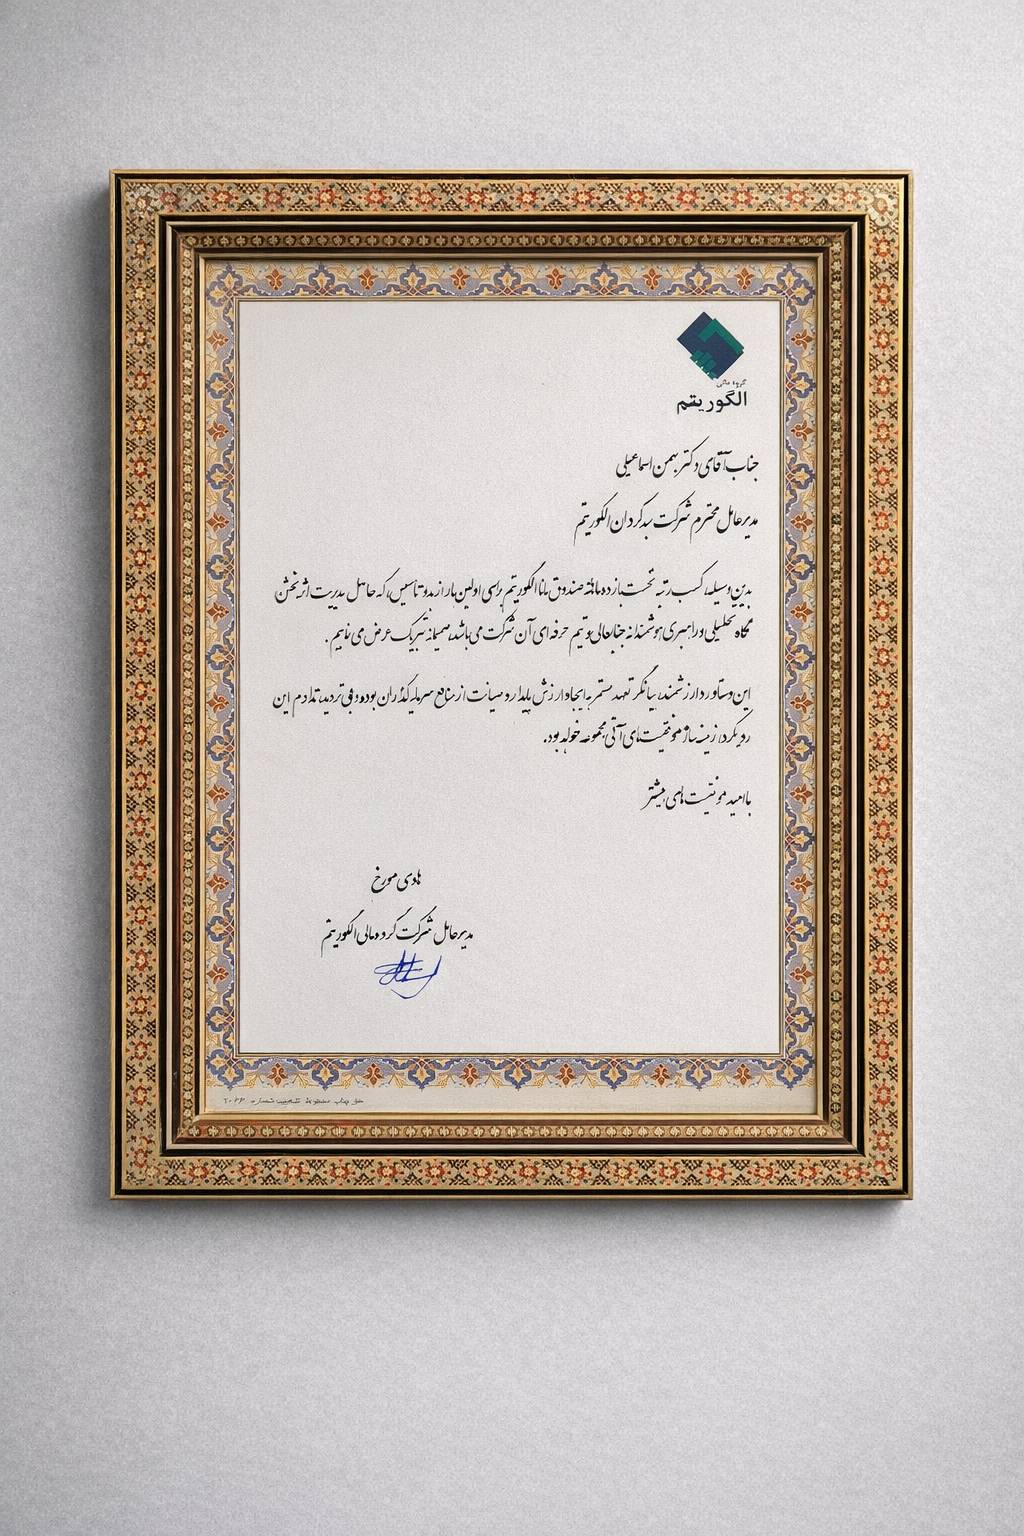 گروه مالی
الگوریتم
جناب آقای دکتر بهمن اسماعیلی
مدیرعامل محترم شرکت سبدگردان الگوریتم
بدین وسیله، کسب رتبه نخست بازده ماهانه صندوق مانا الگوریتم برای اولین بار از بدو تأسیس، که حاصل مدیریت اثربخش،
نگاه تحلیلی و راهبری هوشمندانه جنابعالی و تیم حرفه ای آن شرکت می باشد، صمیمانه تبریک عرض می نمایم.
این دستاورد ارزشمند، بیانگر تعهد مستمر به ایجاد ارزش پایدار و صیانت از منافع سرمایه گذاران بوده و بی تردید، تداوم این
رویکرد، زمینه ساز موفقیت های آتی مجموعه خواهد بود.
با امید موفقیت های بیشتر
هادی مورخ
مدیرعامل شرکت گروه مالی الگوریتم
حق چاپ محفوظ